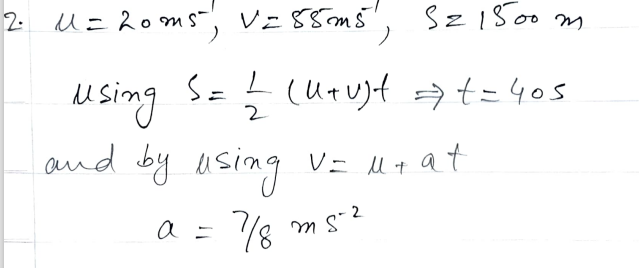 2. u = 20 ms⁻¹, v = 55 ms⁻¹, S = 1500 m
using S = 1/2 (u+v)t ⇒ t = 40 s
and by using v = u + at
a = 7/8 ms⁻²